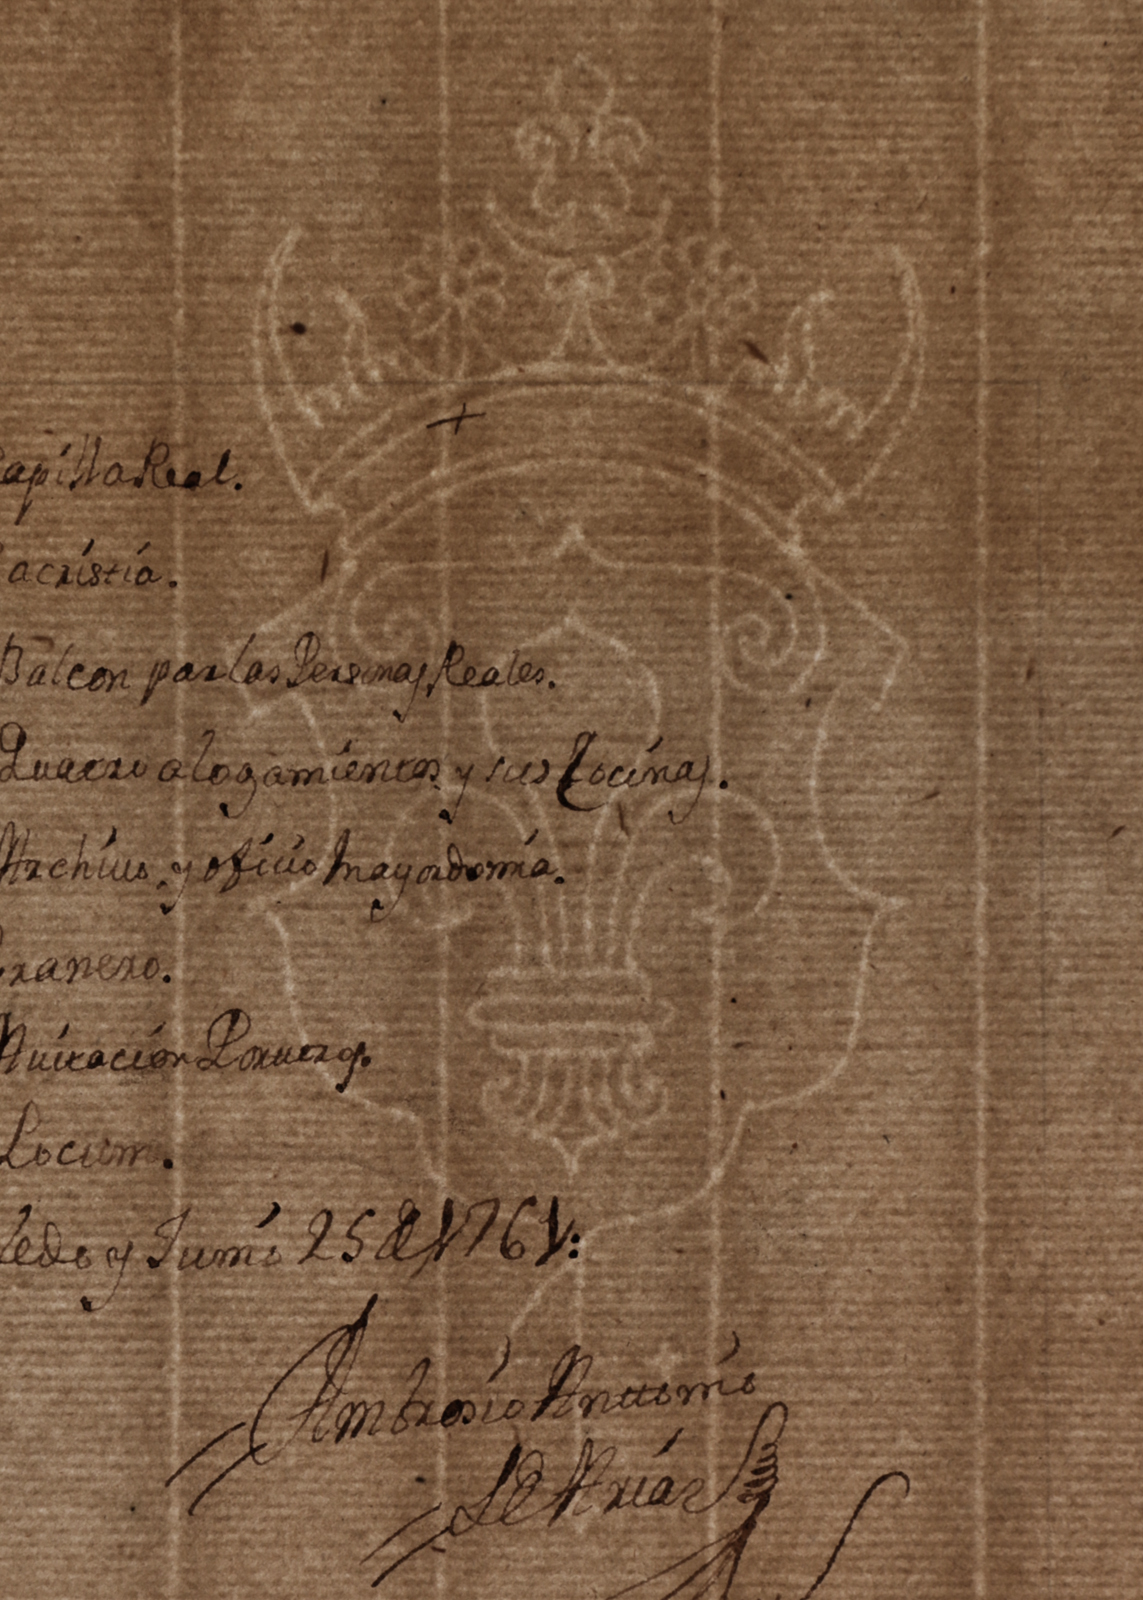 Capilla Real.
Sacristia.
Balcon par las Personas Reales.
Quatro alogamientos y sus Cocinas.
Archivo, y oficio Mayordomia.
Granero.
Avitación Porteros.
Locum.
ledo y Junio 25 de 1761:
Ambrosio Antonio
de Arias